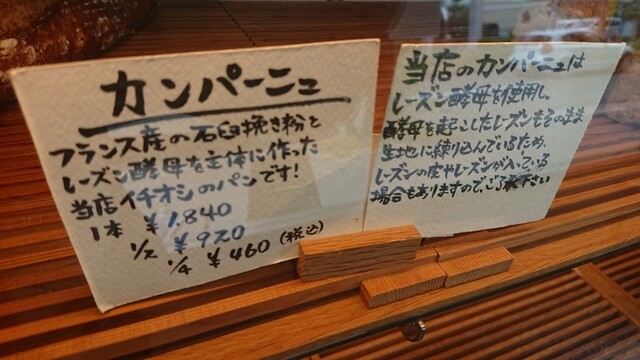 カンパーニュ
フランス産の石臼挽き粉と
レーズン酵母を主体に作った
当店イチオシのパンです!
1本 ¥1.840
1/2 ¥920
1/4 ¥460 (税込)
当店のカンパーニュは
レーズン酵母を使用し、
酵母を起こしたレーズンもそのまま
生地に練り込んでいるため、
レーズンの皮やレーズンが入っている
場合もありますので、ご了承下さい